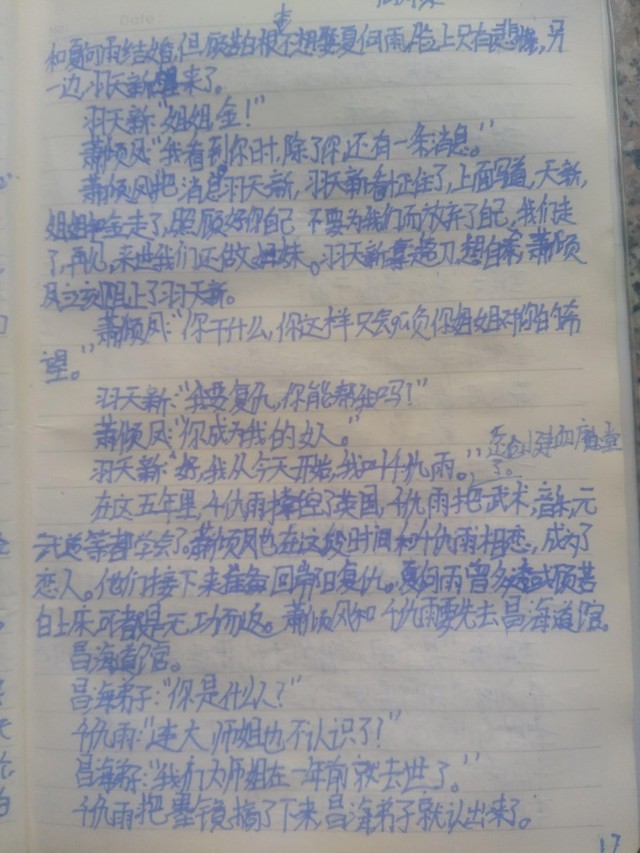 和夏何雨结婚,但顾苦白根本不想娶夏何雨,脸上只有悲愤,另
一边,羽天新醒来了。
羽天新:“姐姐,金!”
萧倾风:“我看到你时,除了你,还有一条消息。”
萧倾风把消息羽天新,羽天新看怔住了,上面写道,天新,
姐姐和金走了,照顾好你自己,不要为我们而放弃了自己,我们走
了,再见,来世我们还做姐妹。羽天新拿起刀,想自杀,萧倾
风立刻阻止了羽天新。
萧倾风:“你干什么,你这样只会辜负你姐姐对你的希
望。”
羽天新:“我要复仇,你能帮我吗!”
萧倾风:“你成为我的女人。”
羽天新:“好,我从今天开始,我叫千仇雨。”
还创建血魔堂
了。
在这五年里,千仇雨掌控了英国,千仇雨把武术,音乐,元
武道等都学会了。萧倾风也在这段时间和千仇雨相恋,成为了
恋人。他们接下来准备回岸阳复仇。夏何雨曾多次试顾苦
白上床,可都是无功而返。萧倾风和千仇雨要先去昌海道馆。
昌海道馆。
昌海弟子:“你是什么人?”
千仇雨:“连大师姐也不认识了!”
昌海弟子:“我们大师姐在一年前就去世了。”
千仇雨把墨镜摘了下来,昌海弟子就认出来了。
17